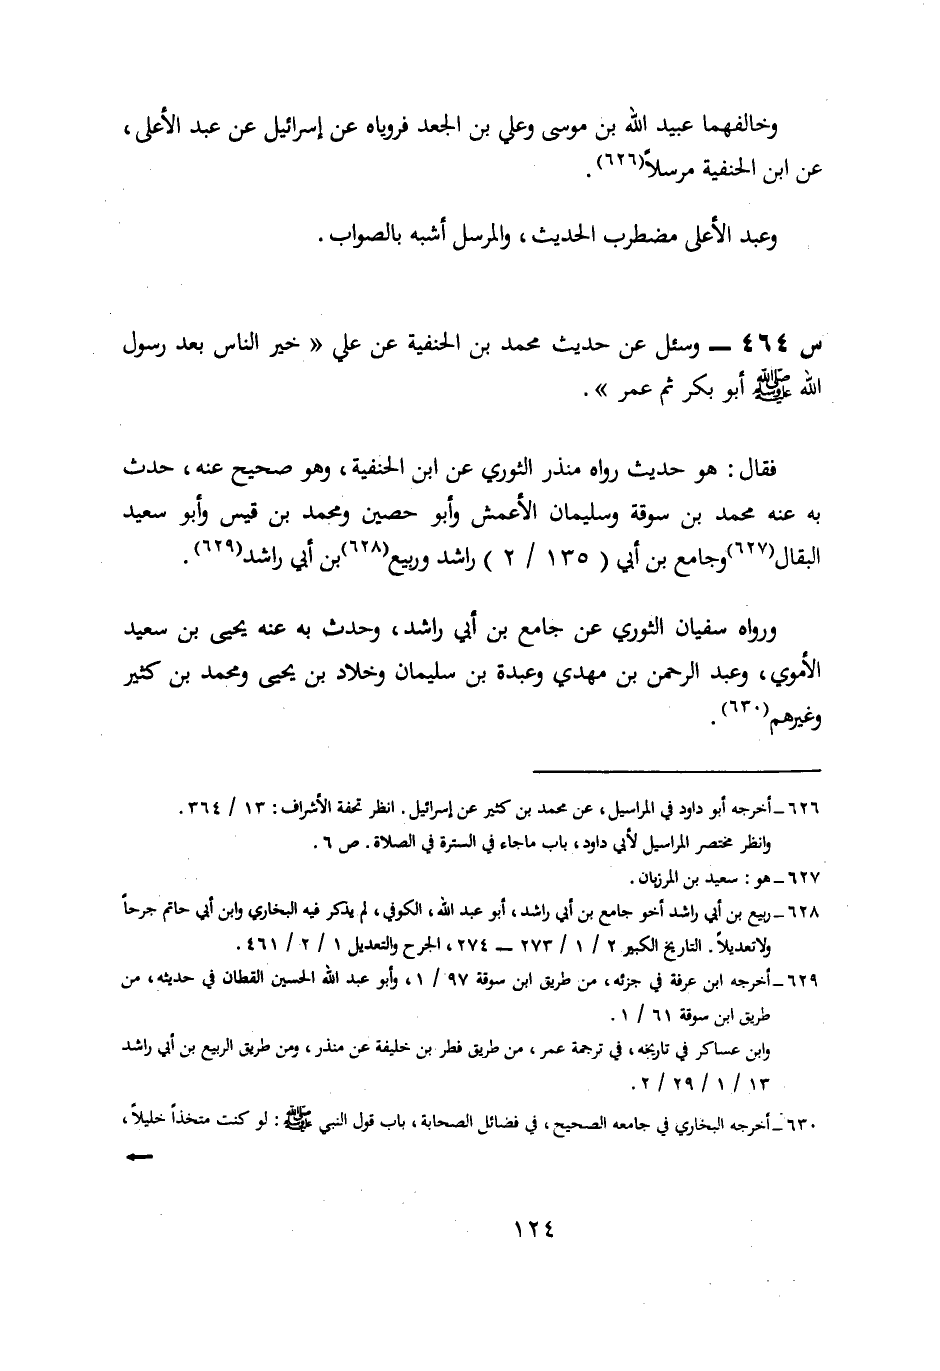 وخالفهما عبيد الله بن موسى وعلي بن الجعد فروياه عن إسرائيل عن عبد الأعلى ،
عن ابن الحنفية مرسلاً(٦٢٦) .
وعبد الأعلى مضطرب الحديث ، والمرسل أشبه بالصواب .
س ٤٦٤ ــ وسئل عن حديث محمد بن الحنفية عن علي « خير الناس بعد رسول
الله ﷺ أبو بكر ثم عمر » .
فقال : هو حديث رواه منذر الثوري عن ابن الحنفية ، وهو صحيح عنه ، حدث
به عنه محمد بن سوقة وسليمان الأعمش وأبو حصين ومحمد بن قيس وأبو سعيد
البقال(٦٢٧)وجامع بن أبي ( ١٣٥ / ٢ ) راشد وربيع(٦٢٨)بن أبي راشد(٦٢٩) .
ورواه سفيان الثوري عن جامع بن أبي راشد ، وحدث به عنه يحيى بن سعيد
الأموي ، وعبد الرحمن بن مهدي وعبدة بن سليمان وخلاد بن يحيى ومحمد بن كثير
وغيرهم(٦٣٠) .
٦٢٦ــ أخرجه أبو داود في المراسيل ، عن محمد بن كثير عن إسرائيل . انظر تحفة الأشراف : ١٣ / ٣٦٤ .
وانظر مختصر المراسيل لأبي داود ، باب ماجاء في السترة في الصلاة . ص ٦ .
٦٢٧ــ هو : سعيد بن المرزبان .
٦٢٨ــ ربيع بن أبي راشد أخو جامع بن أبي راشد ، أبو عبد الله ، الكوفي ، لم يذكر فيه البخاري وابن أبي حاتم جرحاً
ولاتعديلاً . التاريخ الكبير ٢ / ١ / ٢٧٣ ــ ٢٧٤ ، الجرح والتعديل ١ / ٢ / ٤٦١ .
٦٢٩ــ أخرجه ابن عرفة في جزئه ، من طريق ابن سوقة ٩٧ / ١ ، وأبو عبد الله الحسين القطان في حديثه ، من
طريق ابن سوقة ٦١ / ١ .
وابن عساكر في تاريخه ، في ترجمة عمر ، من طريق فطر بن خليفة عن منذر ، ومن طريق الربيع بن أبي راشد
١٣ / ١ / ٢٩ / ٢ .
٦٣٠ــ أخرجه البخاري في جامعه الصحيح ، في فضائل الصحابة ، باب قول النبي ﷺ : لو كنت متخذاً خليلاً ،
←
١٢٤